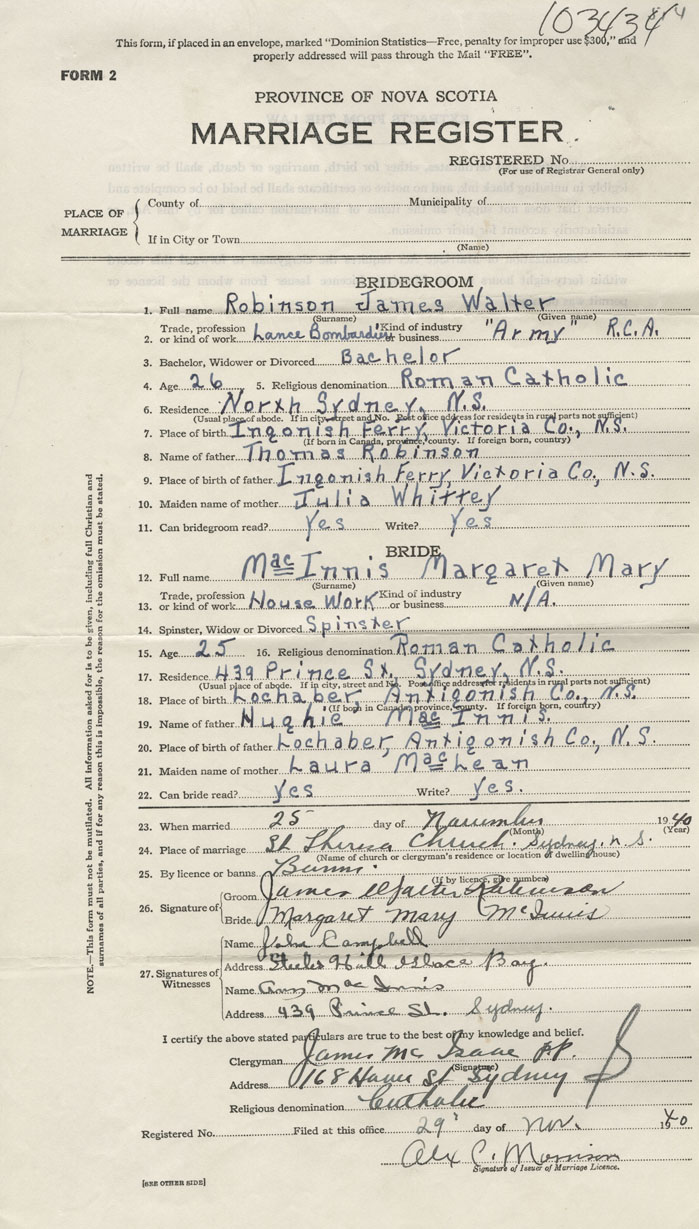 103434
This form, if placed in an envelope, marked "Dominion Statistics—Free, penalty for improper use $300," and
properly addressed will pass through the Mail "FREE".
FORM 2
PROVINCE OF NOVA SCOTIA
MARRIAGE REGISTER
REGISTERED No.
(For use of Registrar General only)
PLACE OF MARRIAGE
County of Municipality of
If in City or Town
(Name)
BRIDEGROOM
1. Full name Robinson James Walter
(Surname) (Given name)
2. Trade, profession or kind of work Lance Bombardier Kind of industry or business "Army" R.C.A.
3. Bachelor, Widower or Divorced Bachelor
4. Age 26 5. Religious denomination Roman Catholic
6. Residence North Sydney, N.S.
(Usual place of abode. If in city, street and No. Post office address for residents in rural parts not sufficient)
7. Place of birth Ingonish Ferry, Victoria Co., N.S.
(If born in Canada, province, county. If foreign born, country)
8. Name of father Thomas Robinson
9. Place of birth of father Ingonish Ferry, Victoria Co, N.S.
10. Maiden name of mother Julia Whittey
11. Can bridegroom read? Yes Write? Yes
BRIDE
12. Full name MacInnis Margaret Mary
(Surname) (Given name)
13. Trade, profession or kind of work House Work Kind of industry or business N/A.
14. Spinster, Widow or Divorced Spinster
15. Age 25 16. Religious denomination Roman Catholic
17. Residence 439 Prince St, Sydney, N.S.
(Usual place of abode. If in city, street and No. Post office address for residents in rural parts not sufficient)
18. Place of birth Lochaber, Antigonish Co., N.S.
(If born in Canada, province, county. If foreign born, country)
19. Name of father Hughie MacInnis.
20. Place of birth of father Lochaber, Antigonish Co., N.S.
21. Maiden name of mother Laura MacLean
22. Can bride read? Yes Write? Yes.
23. When married 25 day of November 1940
(Month) (Year)
24. Place of marriage St Theresa Church. Sydney. N.S.
(Name of church or clergyman's residence or location of dwelling house)
25. By licence or banns Banns.
(If by licence, give number)
26. Signature of
Groom James Walter Robinson
Bride Margaret Mary McInnis
27. Signatures of Witnesses
Name John Campbell
Address Steeles Hill Glace Bay.
Name Ann MacInnis
Address 439 Prince St. Sydney.
I certify the above stated particulars are true to the best of my knowledge and belief.
Clergyman James Mc Isaac P.P.
(Signature)
Address 168 St Sydney
Religious denomination Catholic
Registered No. Filed at this office 29 day of Nov. 1940
Alex C. Morrison
Signature of Issuer of Marriage Licence.
[SEE OTHER SIDE]
NOTE.—This form must not be mutilated. All information asked for is to be given, including full Christian and
surnames of all parties, and if for any reason this is impossible, the reason for the omission must be stated.